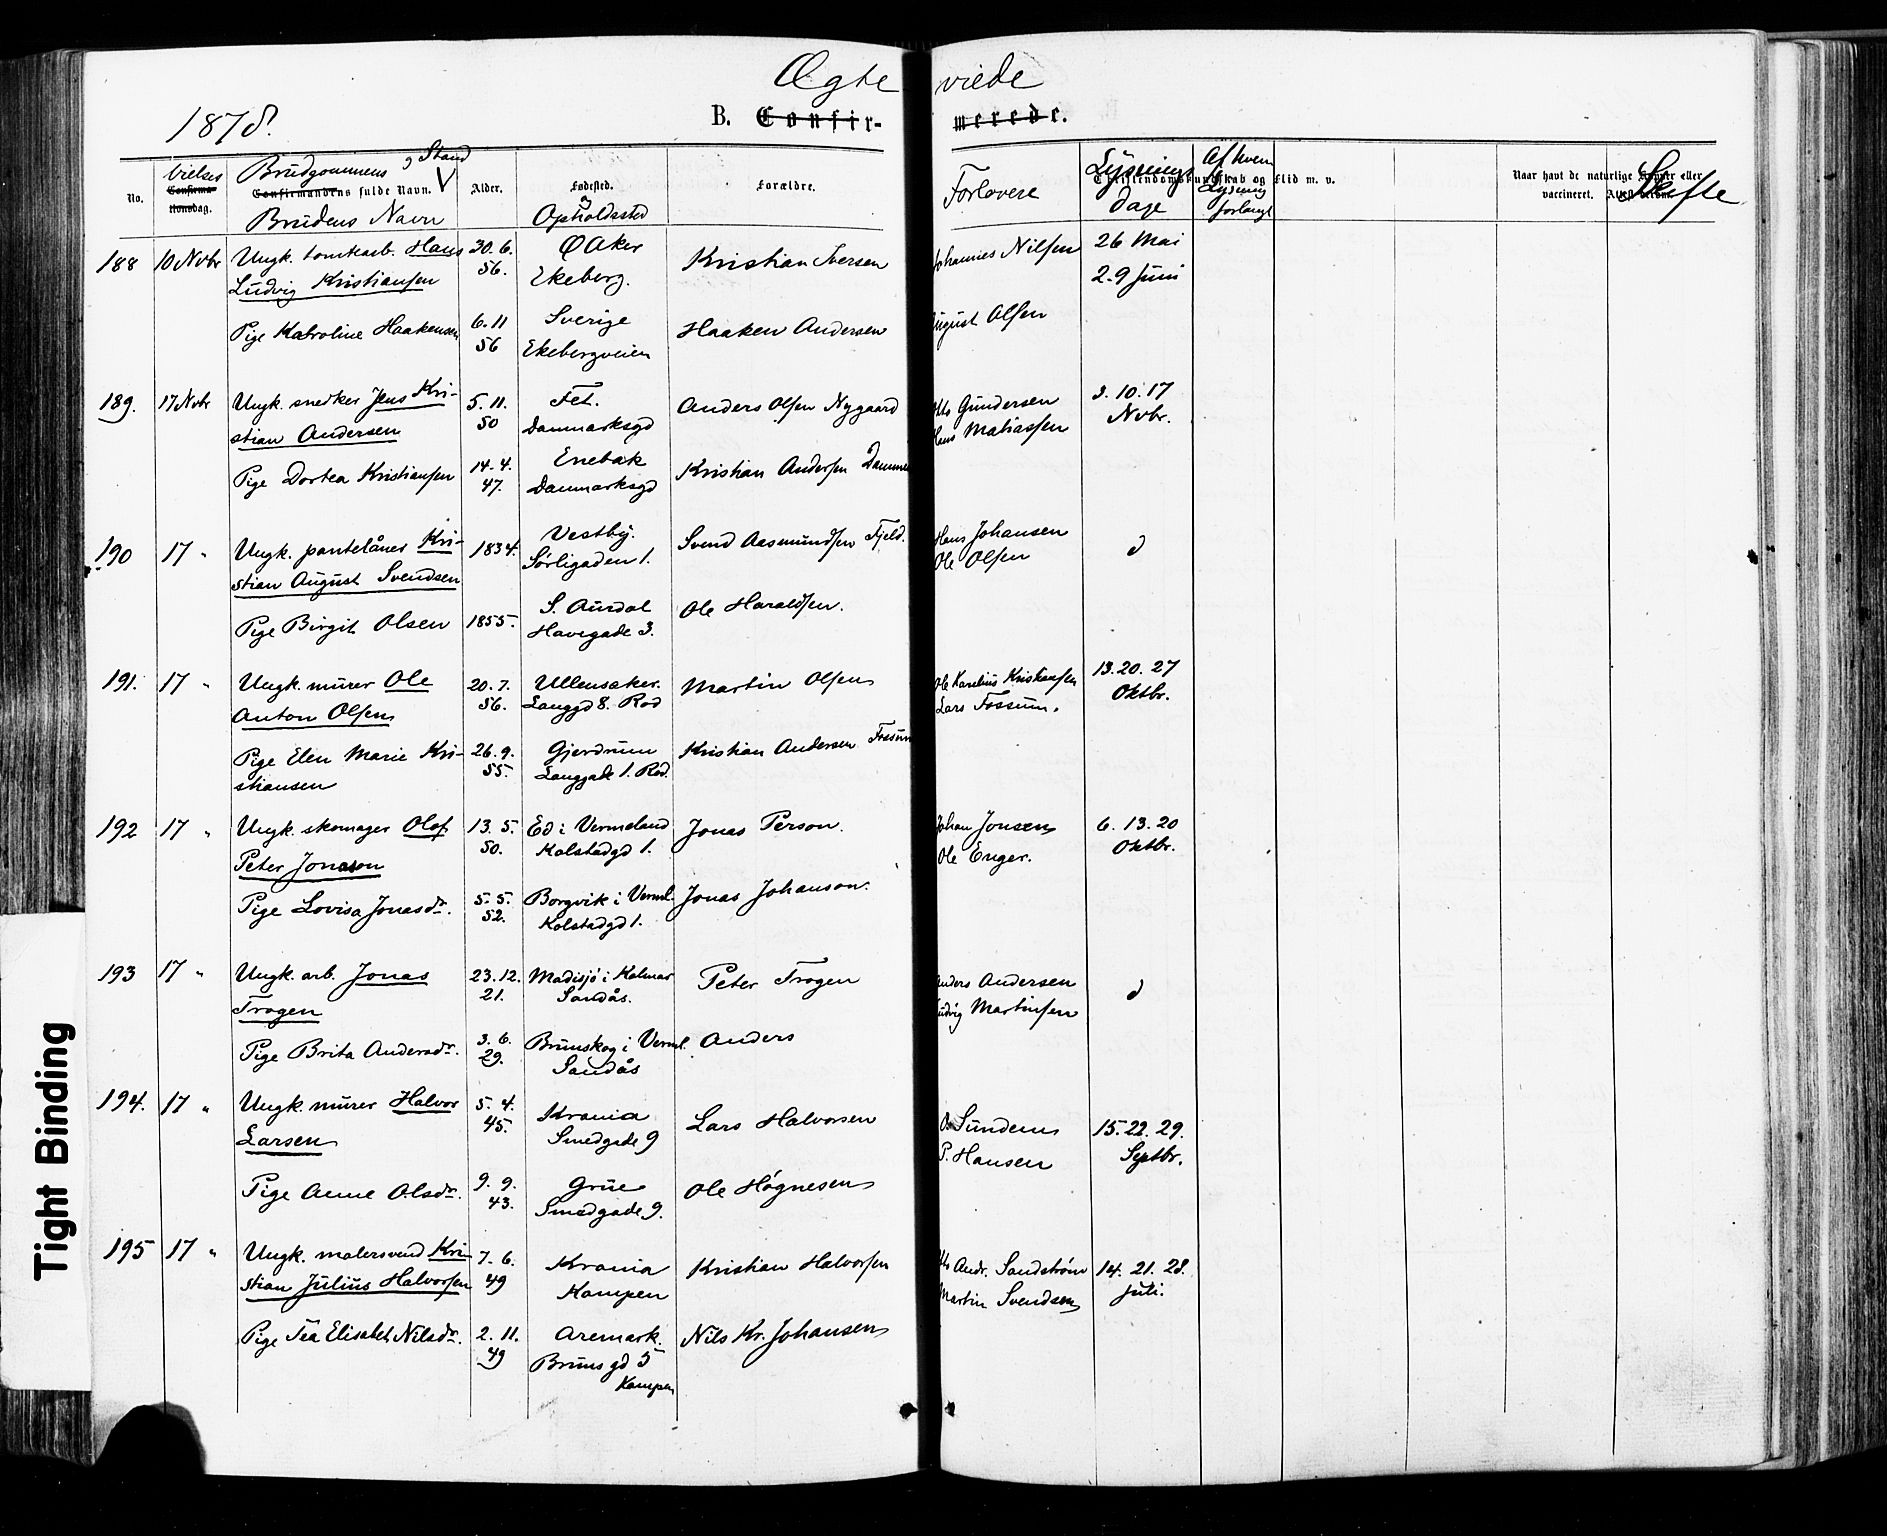 Ægte viede
1878.
B. Confir- merede.
No.
Vielses
Confirma-
tionsdag.
Brudgommens Stand
Confirmandens fulde Navn.
Brudens Navn
Alder.
Fødested.
Opholdssted
Forældre.
Forlovere
Lysnings
dage
Christendomskundskab og Flid m. v.
Af hvem
Lysning
forlangt
Naar havt de naturlige Kopper eller
vaccineret.
Skifte
188 10 Novbr Ungk. tomtearb. Hans 30. 6. Ø Aker Kristian Iversen Johannes Nilsen 26 Mai
Ludvig Kristiansen 56. Ekeberg. 2-9 Juni
Pige Karoline Haakensen 6. 11 Sverige Haaken Andersen August Olsen
56 Ekebergveien
189. 17 Novbr Ungk. snedker Jens Kri- 5. 11. Fet. Anders Olsen Nygaard Gundersen 3. 10. 17
stian Andersen 50 Danmarksgd Hans Matiassen Novbr.
Pige Dortea Kristiansen 14. 4. Enebak Kristian Andersen
47. Danmarksgd
190 17 " Ungk. pantelåner Kri- 1834. Vestby. Svend Aasmundsen Fjeld. Hans Johansen d
stian August Svendsen Sørligaden 1. Ole Olsen
Pige Birgit Olsen 1855. S. Aurdal Ole Haraldsen.
Havegade 3.
191. 17 " Ungk. murer Ole 20. 7. Ullensaker. Martin Olsen Ole Karelius Kristiansen 13. 20. 27
Anton Olsen 56. Langgd 8. Rod Lars Fossum. Oktbr.
Pige Elen Marie Kri- 26. 9. Gjerdrum Kristian Andersen Fossum
stiansen 55. Langgade 1. Rod.
192 17 " Ungk. skomager Olof 13. 5. Ed i Vermeland Jonas Person. Johan Jonsen 6. 13. 20
Peter Jonasson 50. Kolstadgd 1. Ole Enger. Oktbr.
Pige Lovisa Jonasdr. 5. 5. Borgvik i Verml. Jonas Johanson.
52. Kolstadgd 1.
193 17 " Ungk. arb. Jonas 23. 12. Madisjö i Kalmar Peter Trogen Anders Andersen d
Trogen 21. Sandås. Ludvig Martinsen
Pige Brita Andersdr. 3. 6. Brunskog i Verml. Anders
29. Sandås
194. 17 " Ungk. murer Halvor 5. 4. Krania Lars Halvorsen Sunden 15. 22. 29.
Larsen 45. Smedgade 9 P. Hansen Septbr.
Pige Anne Olsdr. 9. 9. Grue Ole Høgnesen
43. Smedgade 9.
195 17 " Ungk. malersvend Kri- 7. 6. Krania Kristian Halvorsen Andr. Sandstrøm 14. 21. 28.
stian Julius Halvorsen 49 Kampen Martin Svendsen Juli.
Pige Tea Elisabet Nilsdr. 2. 11. Aremark. Nils Kr. Johansen
49 Brunsgd 5
Kampen
Tight Binding